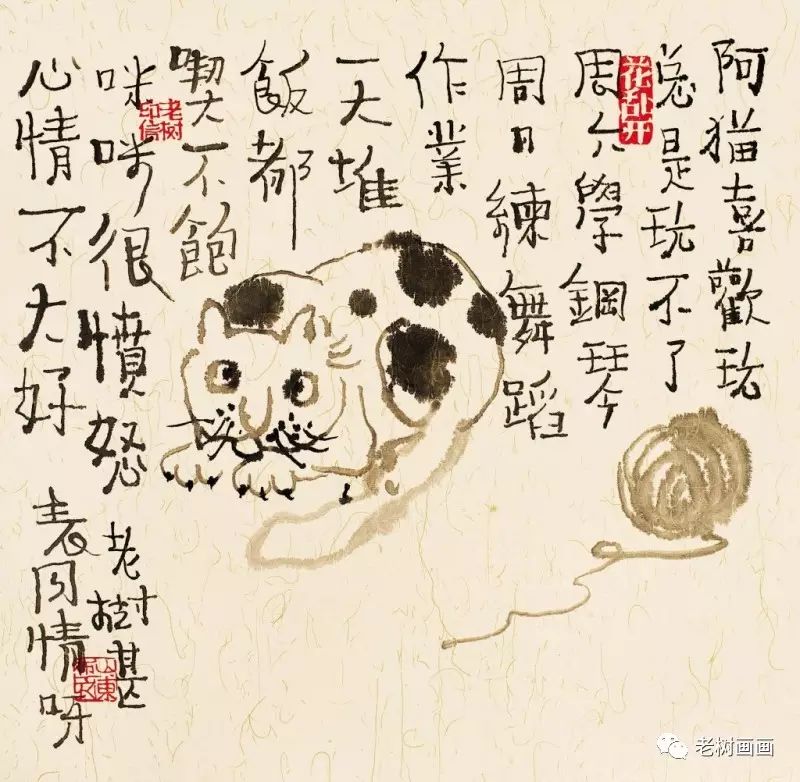 阿猫喜歡玩
总是玩不了
周六學鋼琴
周日練舞蹈
作業
一大堆
飯都
喫不飽
咪咪很憤怒
心情不大好
老樹甚
表同情呀
花乱开
老树印信
老树画画